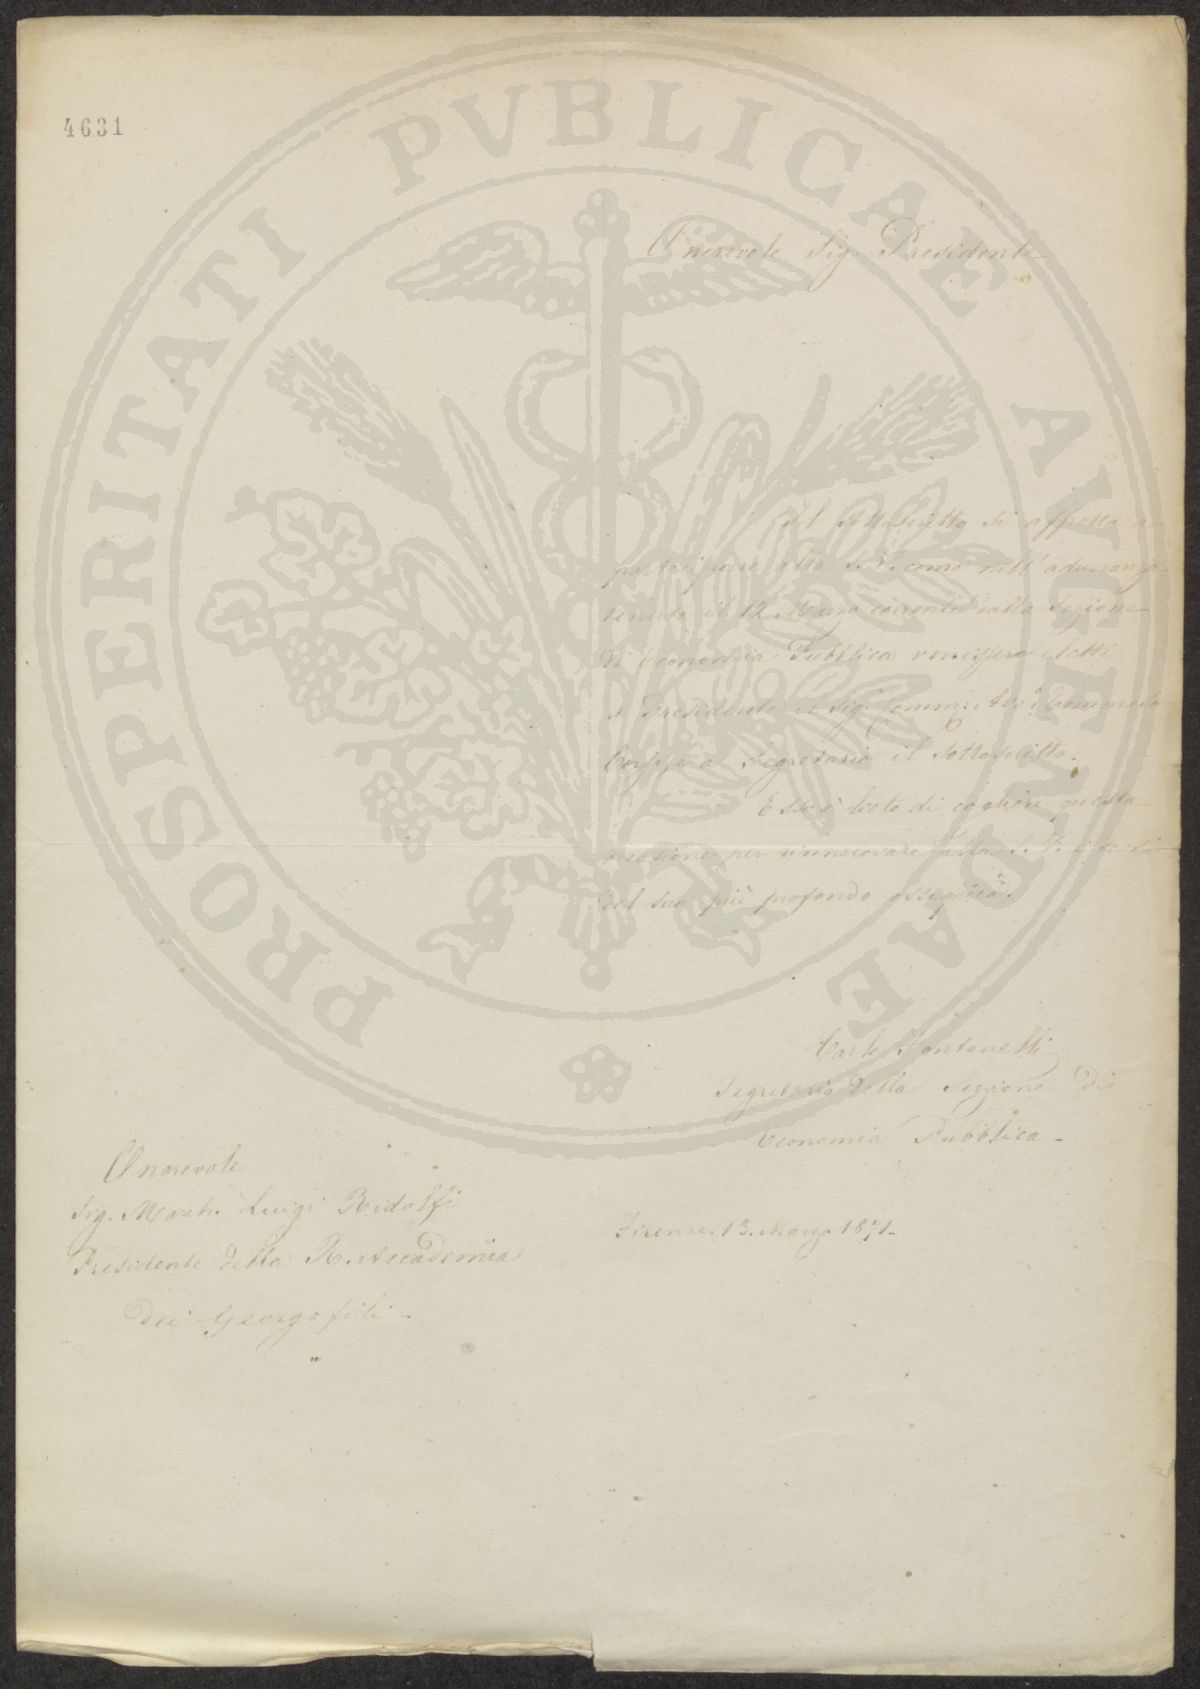 4631
PROSPERITATI PVBLICAE AVGENDAE
Onorevole Sig. Presidente
Il sottoscritto si affretta a
partecipare alla S.V. come nell'adunanza
tenuta il 12 Marzo corrente dalla Sezione
di Economia Pubblica venissero eletti
a Presidente il Sig.
e a Segretario il Sottoscritto.
Esso è lieto di cogliere questa
occasione per rinnovare alla S.V. i sensi
del suo più profondo ossequio.
Carlo Fontanelli
Segretario della Sezione di
Economia Pubblica -
Onorevole
Sig. March. Luigi Ridolfi
Presidente della R. Accademia
dei Georgofili -
Firenze. 13. Marzo 1871.